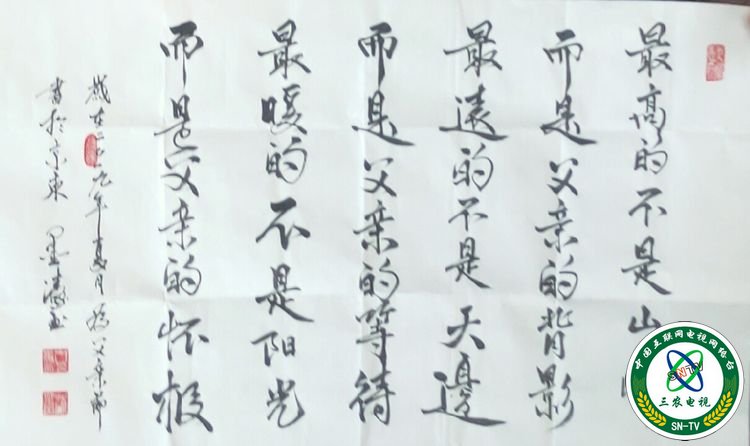 最高的不是山
而是父亲的背影
最遠的不是天邊
而是父亲的等待
最暖的不是阳光
而是父亲的怀抱
歲在二〇一九年夏月为父亲節
書於京東
中国互联网电视网络台
SNTV
三农电视
SN-TV